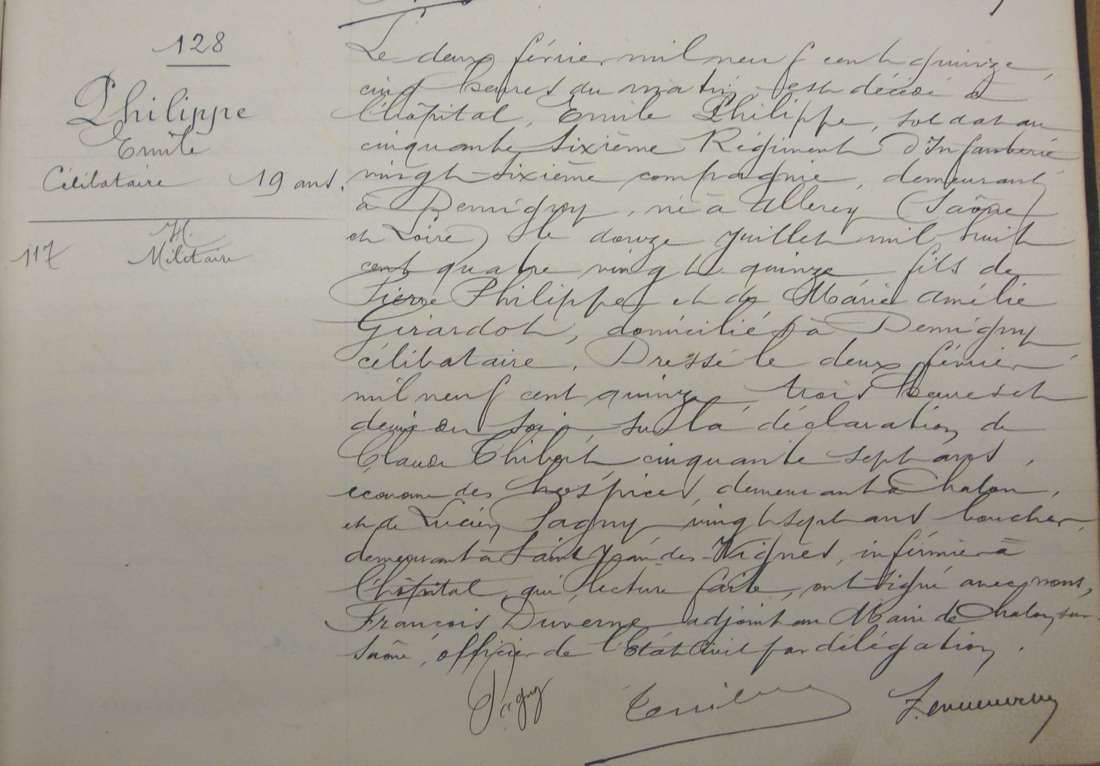 128
Philippe
Emile
Célibataire 19 ans.
117 H
Militaire
Le deux février mil neuf cent quinze,
cinq heures du matin, est décédé à
l'hôpital, Emile Philippe, soldat au
cinquante sixième Régiment d'Infanterie
vingt-sixième compagnie, demeurant
à Demigny, né à Allerey (Saône
et Loire) le douze juillet mil huit
cent quatre vingt quinze fils de
Pierre Philippe et de Marie Amélie
Girardot, domiciliés à Demigny
célibataire. Dressé le deux février
mil neuf cent quinze trois heures et
demie du soir, sur la déclaration de
Claude Thibert cinquante sept ans,
économe des hospices, demeurant à Chalon,
et de Lucien Pagny vingt sept ans boucher,
demeurant à Saint Jean des Vignes, infirmier à
l'hôpital, qui, lecture faite, ont signé avec nous,
François Duverne adjoint au Maire de Chalon-sur-
Saône, officier de l'Etat Civil par délégation.
Pagny